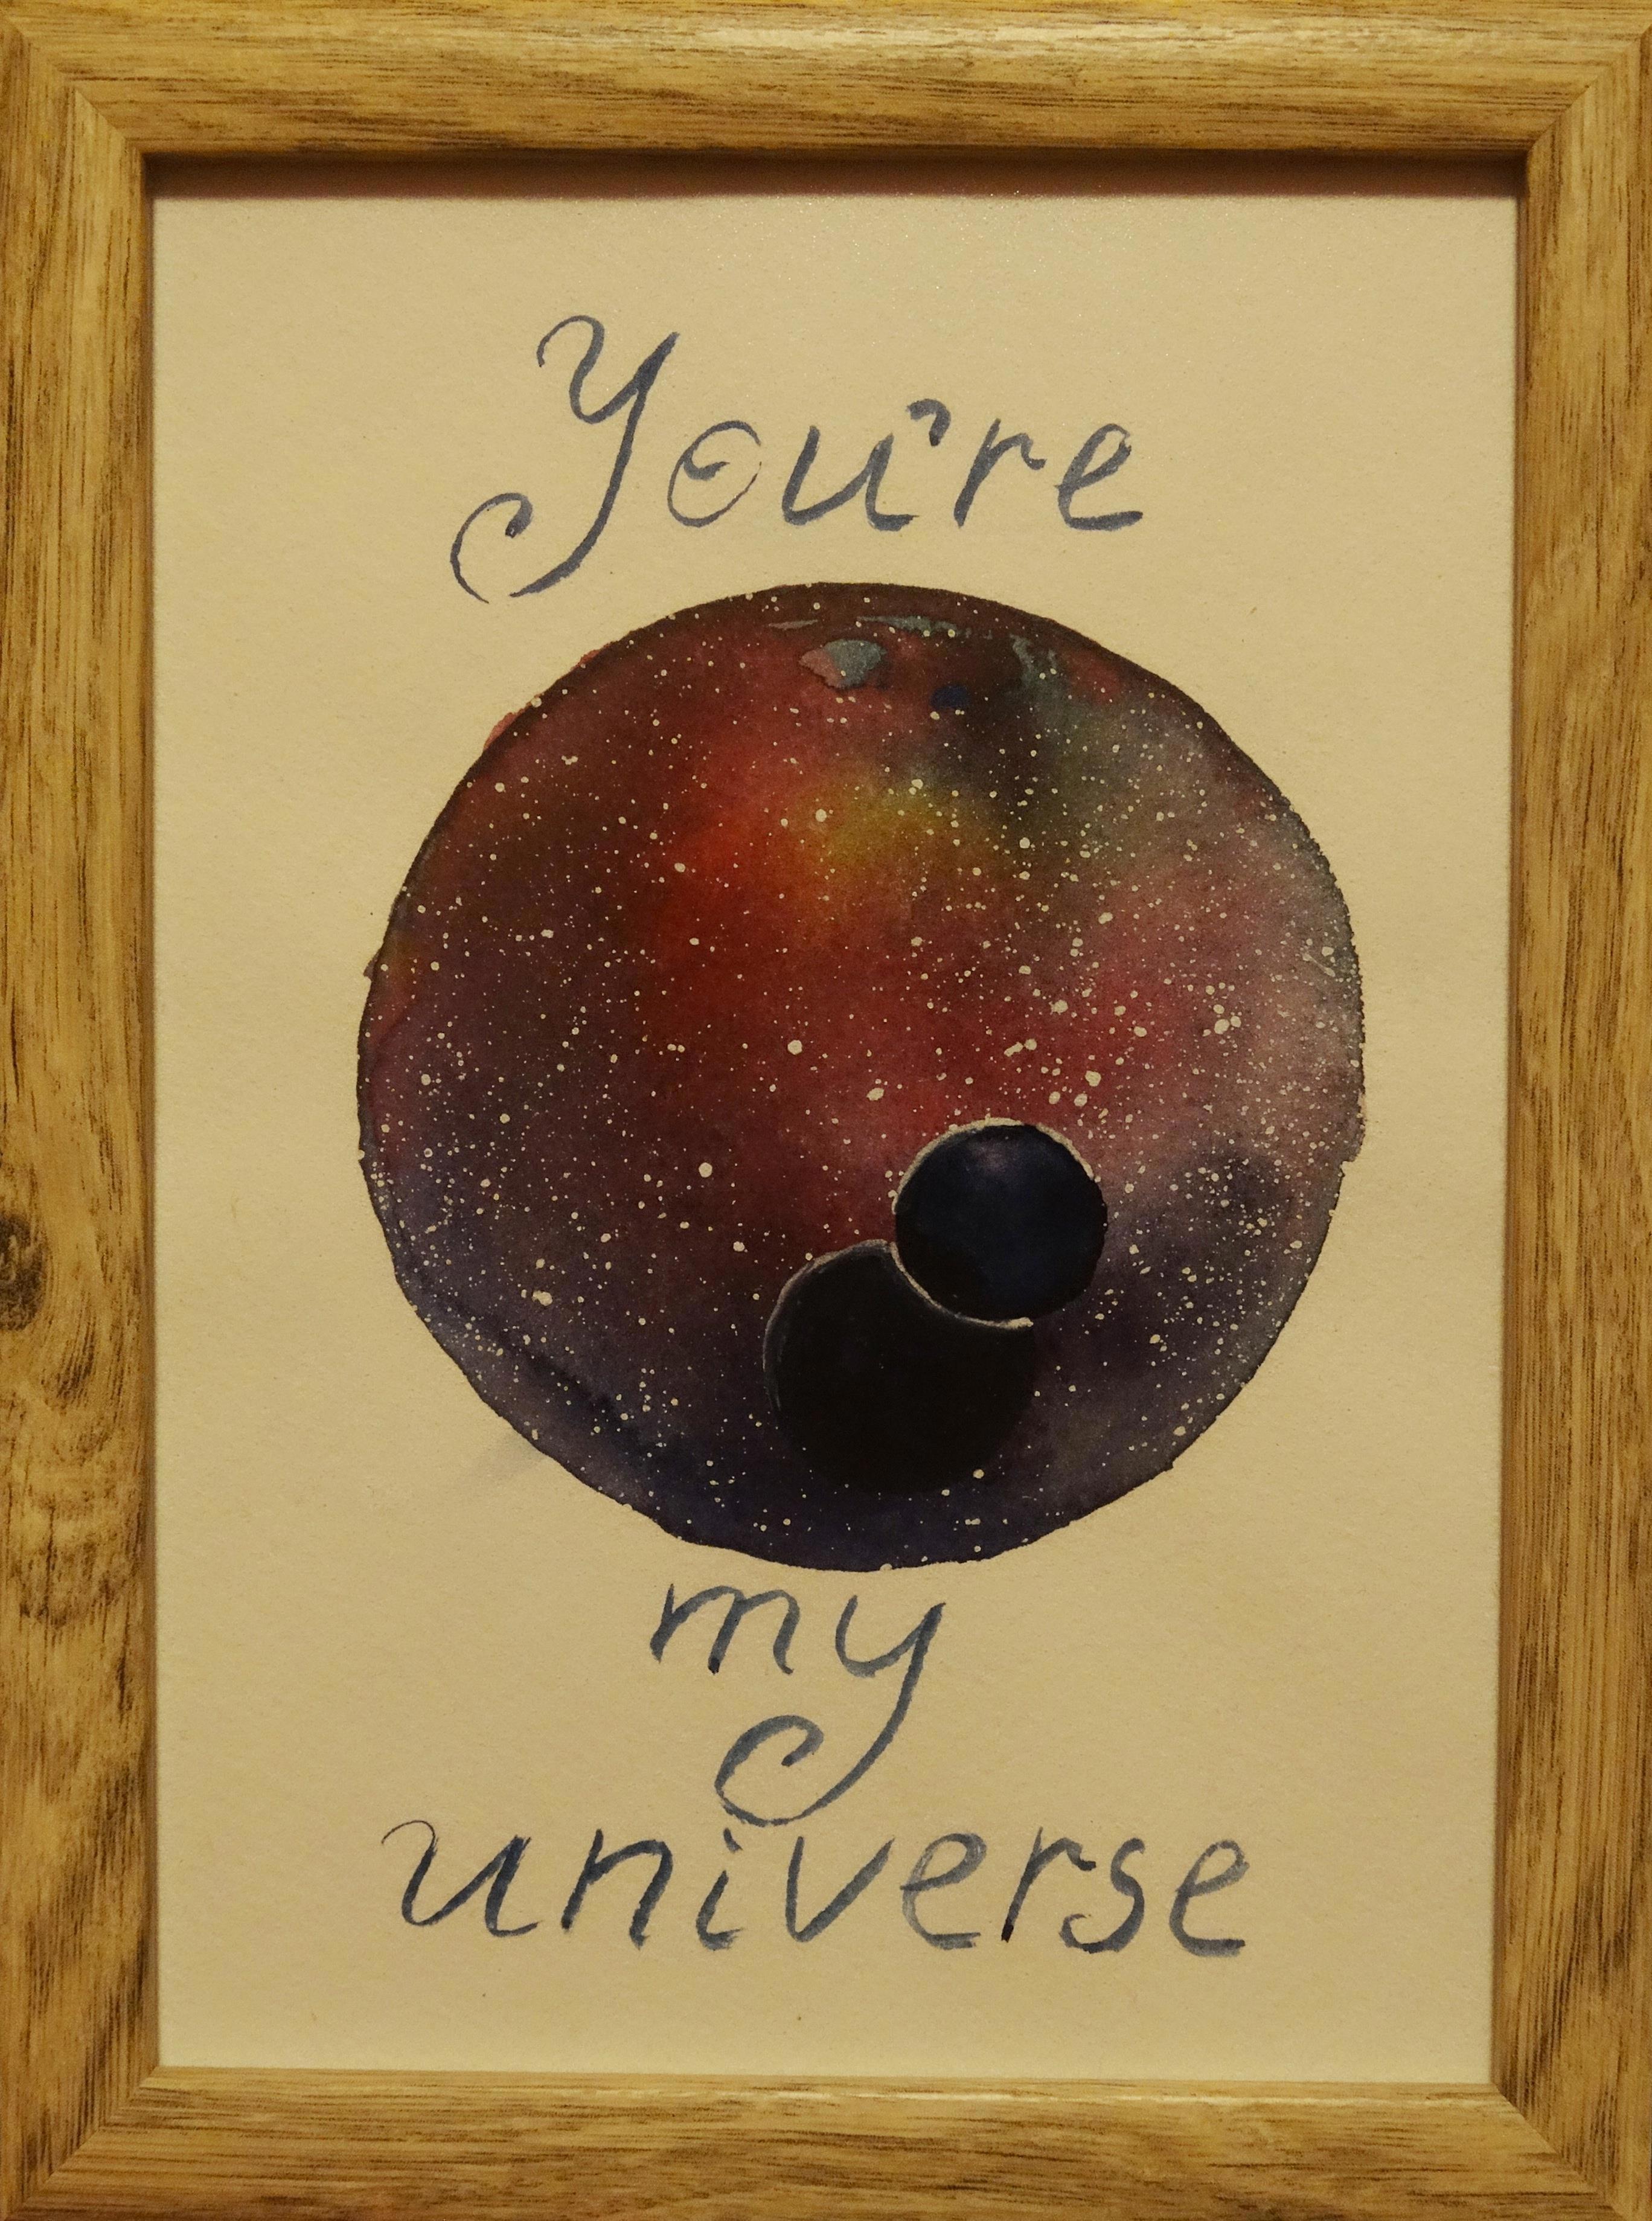 You're
my
universe